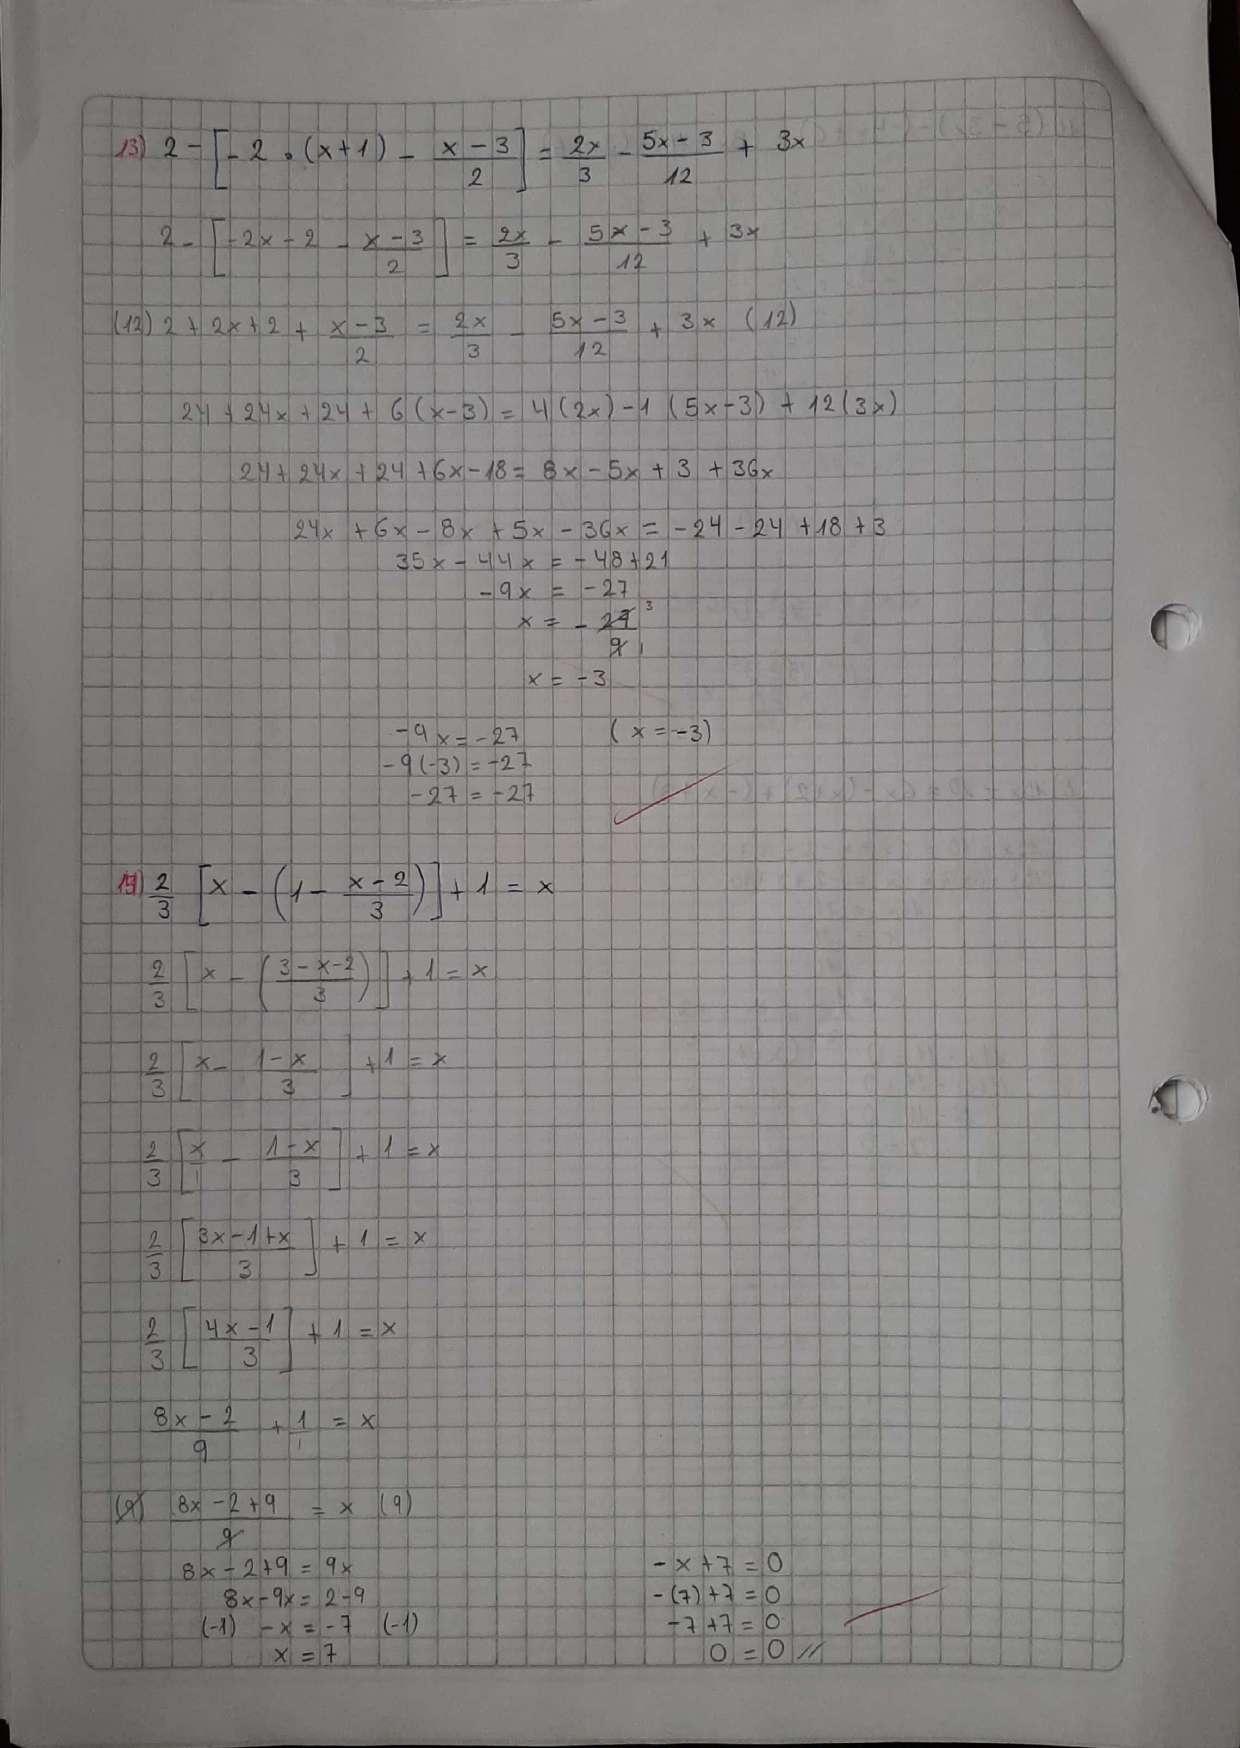 13) 2 - [ -2 • (x+1) - (x-3)/2 ] = 2x/3 - (5x-3)/12 + 3x
2 - [ -2x - 2 - (x-3)/2 ] = 2x/3 - (5x-3)/12 + 3x
(12) 2 + 2x + 2 + (x-3)/2 = 2x/3 - (5x-3)/12 + 3x (12)
24 + 24x + 24 + 6(x-3) = 4(2x) - 1 (5x-3) + 12(3x)
24 + 24x + 24 + 6x - 18 = 8x - 5x + 3 + 36x
24x + 6x - 8x + 5x - 36x = -24 - 24 + 18 + 3
35x - 44x = -48 + 21
-9x = -27
x = - 27/9 3 1
x = -3
-9x = -27 (x = -3)
-9(-3) = -27
-27 = -27
2/3 [ x - (1 - (x-2)/3) ] + 1 = x
2/3 [ x - ((3-x-2)/3) ] + 1 = x
2/3 [ x - (1-x)/3 ] + 1 = x
2/3 [ x/1 - (1-x)/3 ] + 1 = x
2/3 [ (3x-1+x)/3 ] + 1 = x
2/3 [ (4x-1)/3 ] + 1 = x
(8x-2)/9 + 1/1 = x
(9) (8x-2+9)/9 = x (9)
8x - 2 + 9 = 9x
8x - 9x = 2 - 9
(-1) -x = -7 (-1)
x = 7
-x + 7 = 0
-(7) + 7 = 0
-7 + 7 = 0
0 = 0 //